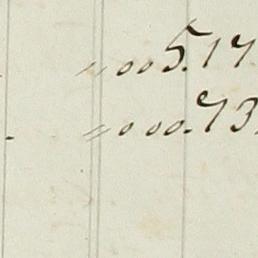 „ 005.17
„ 000.73